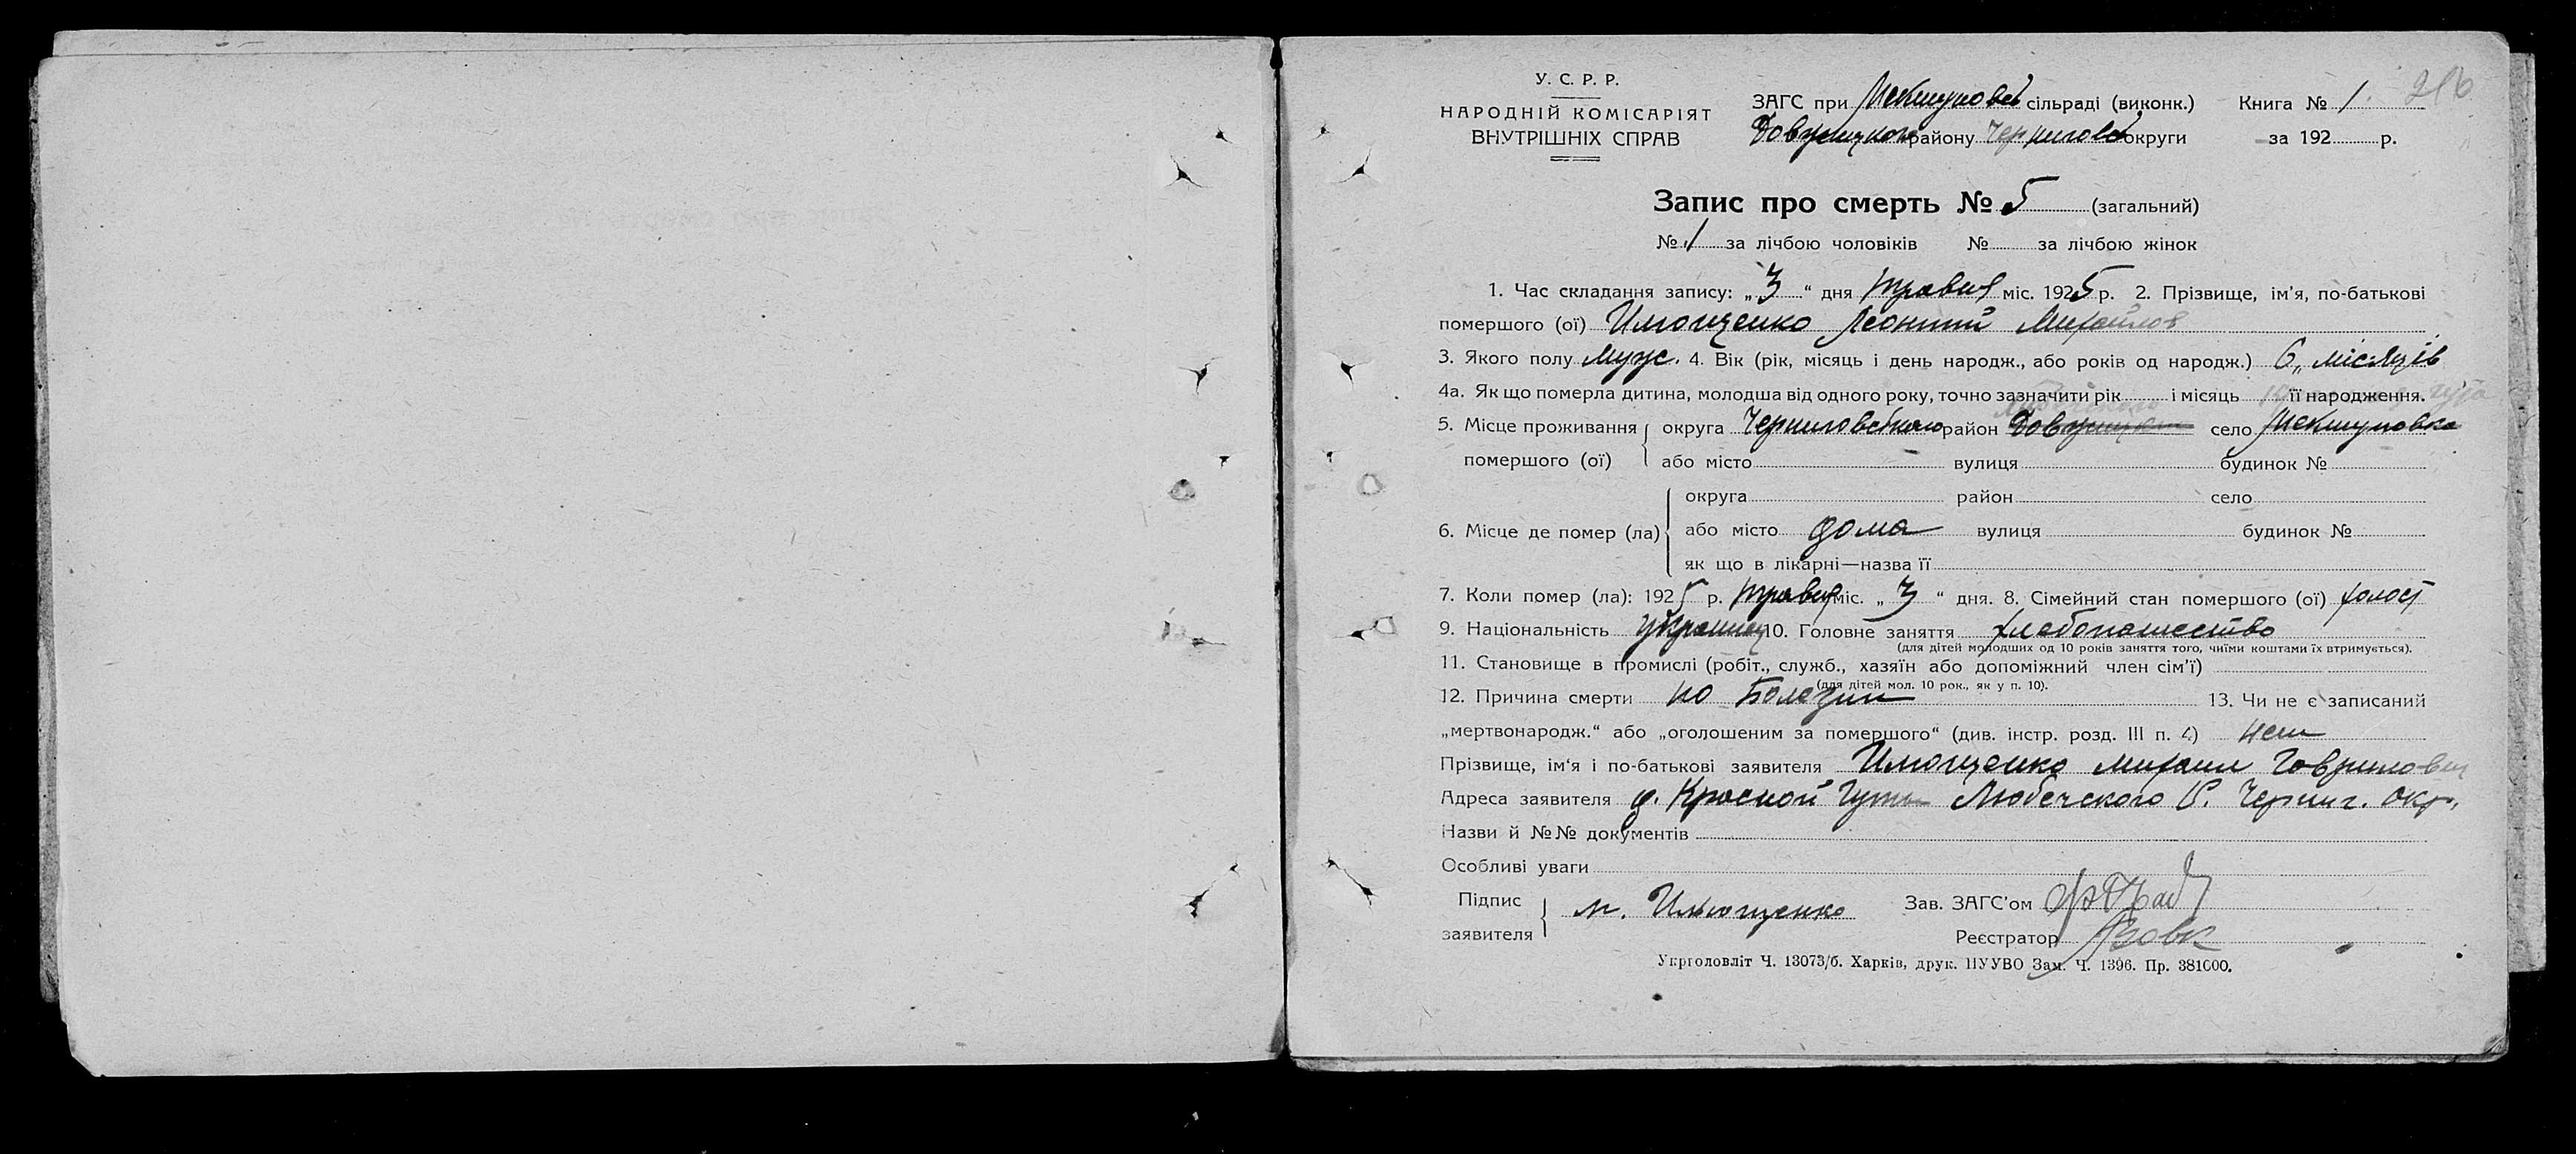 У. С. Р. Р.
НАРОДНІЙ КОМІСАРІЯТ
ВНУТРІШНІХ СПРАВ
ЗАГС при сільраді (виконк.) Книга № 1. 216
району округи за 192 р.
Запис про смерть № 5 (загальний)
№ 1 за лічбою чоловіків № за лічбою жінок
1. Час складання запису: „3“ дня травня міс. 1925 р. 2. Прізвище, ім'я, по-батькові
помершого (ої) Ильющенко Леонтий Михайлов
3. Якого полу муж. 4. Вік (рік, місяць і день народж., або років од народж.) 6„ місяців
4а. Як що померла дитина, молодша від одного року, точно зазначити рік і місяць її народження.
5. Місце проживання округа Черниговского район село
помершого (ої) або місто вулиця будинок №
округа район село
6. Місце де помер (ла) або місто дома вулиця будинок №
як що в лікарні—назва її
7. Коли помер (ла): 1925 р. травня міс. „3“ дня. 8. Сімейний стан помершого (ої) холост
9. Національність украинец 10. Головне заняття хлебопашество
(для дітей молодших од 10 років заняття того, чиїми коштами їх втримується).
11. Становище в промислі (робіт., служб., хазяїн або допоміжний член сім'ї)
(для дітей мол. 10 рок., як у п. 10).
12. Причина смерти по Болезни 13. Чи не є записаний
„мертвонародж.“ або „оголошеним за помершого“ (див. інстр. розд. III п. 4) нет
Прізвище, ім'я і по-батькові заявителя Ильющенко Михаил Гаврилович
Адреса заявителя д. Красной Гуты Любечского Р. Черниг. окр.
Назви й №№ документів
Особливі уваги
Підпис
заявителя М. Ильющенко Зав. ЗАГС'ом
Реєстратор
Укрголовліт Ч. 13073/б. Харків, друк. ПУУВО Зам. Ч. 1396. Пр. 381000.